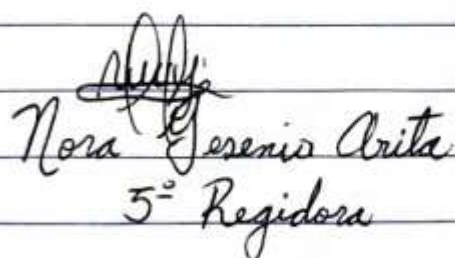 Nora Yesenia Arita
5º Regidora